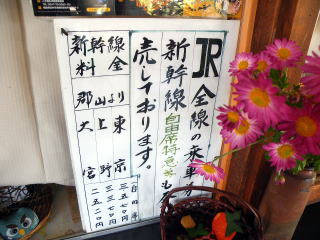 JR全線の乗車
新幹線自由席特急券も
売しております。
新幹線
料金
郡山より
東京
上野
大宮
自由席
三五七〇円
三三七〇円
二五二〇円